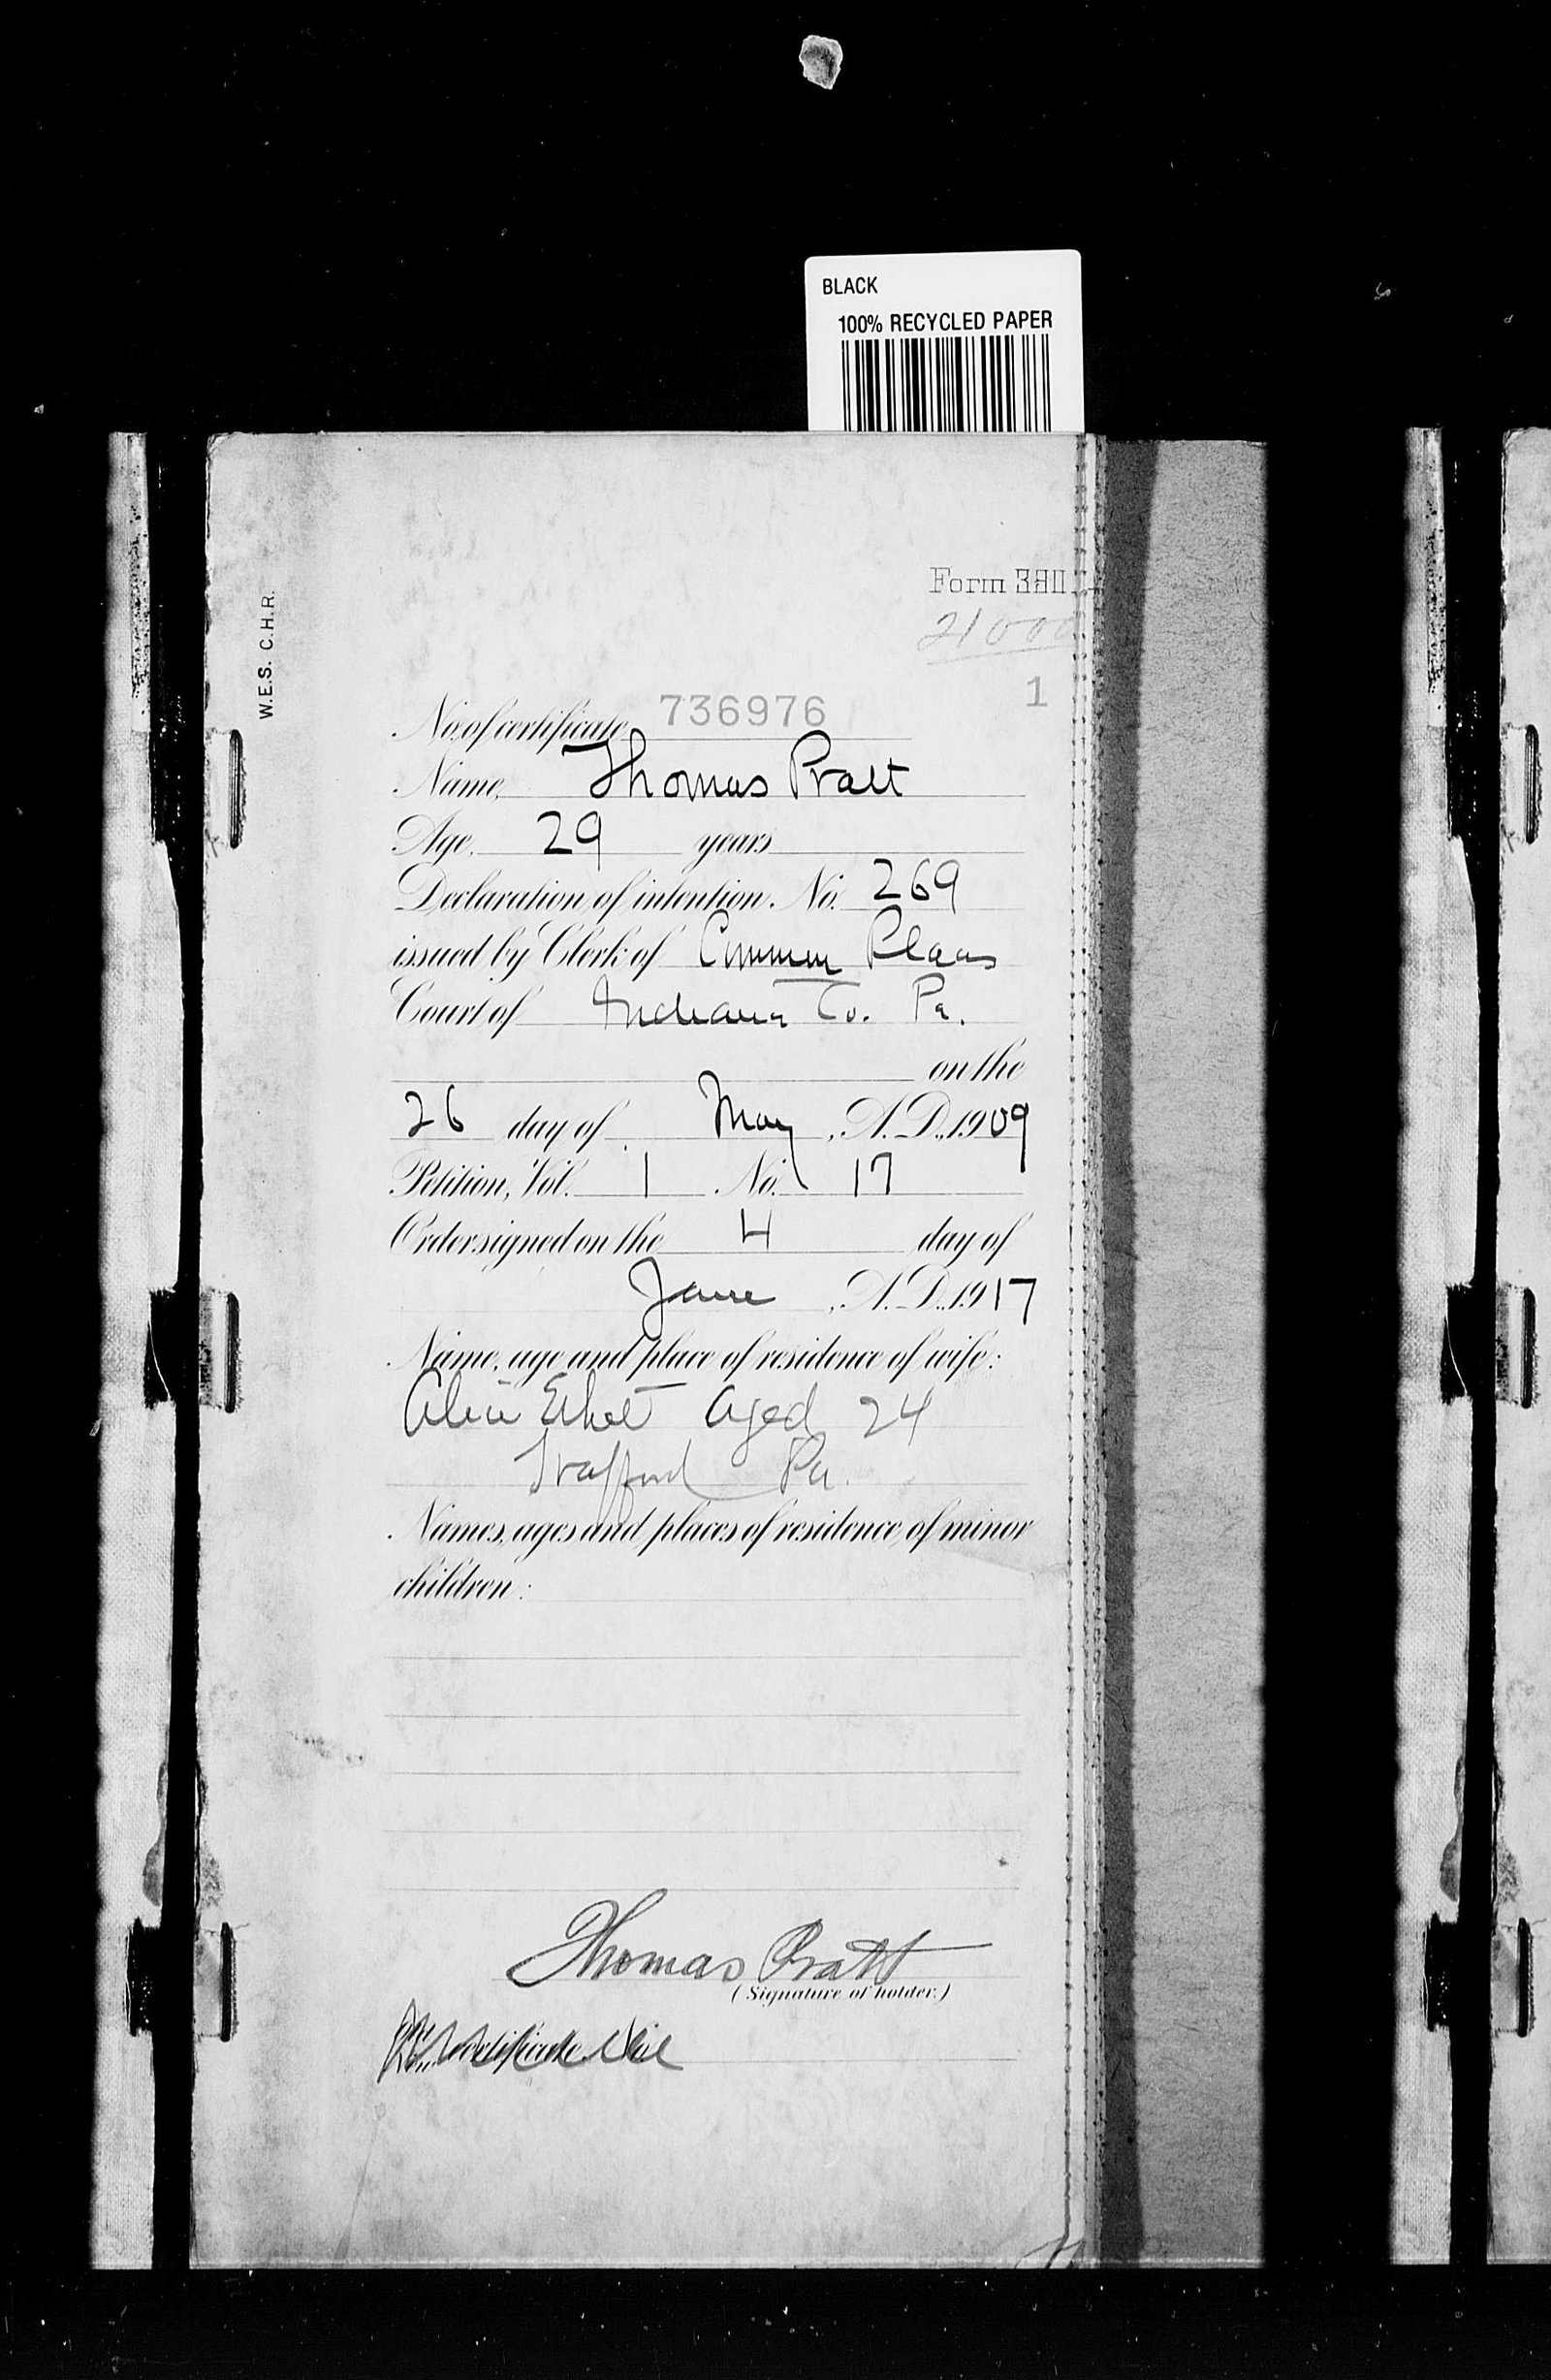 BLACK
100% RECYCLED PAPER
W.E.S. C.H.R.
Form
21000
1
No. of certificate, 736976
Name, Thomas Pratt
Age, 29 years
Declaration of intention. No. 269
issued by Clerk of Common Pleas
Court of Indiana Co. Pa.
on the
26 day of May, A. D., 1909
Petition, Vol. 1 No. 17
Order signed on the 4 day of
June, A. D., 1917
Name, age and place of residence of wife:
Alice Ethel Aged 24
Trafford Pa.
Names, ages and places of residence of minor
children:
Thomas Pratt
(Signature of holder.)